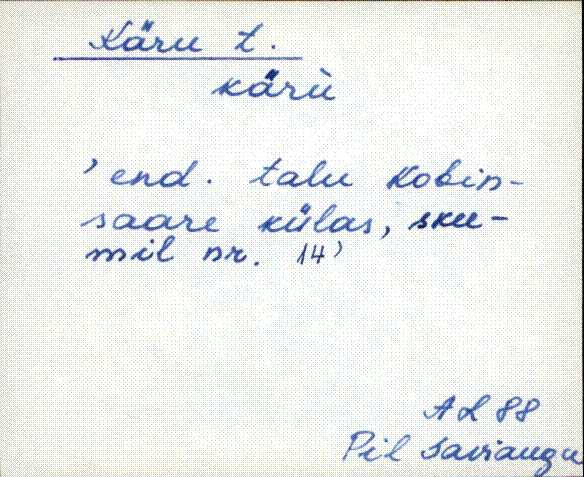 Käru t.
kärù
'end. talu Kobin-
saare külas, sku-
mil nr. 14'
AL 88
Pil Saviaugu